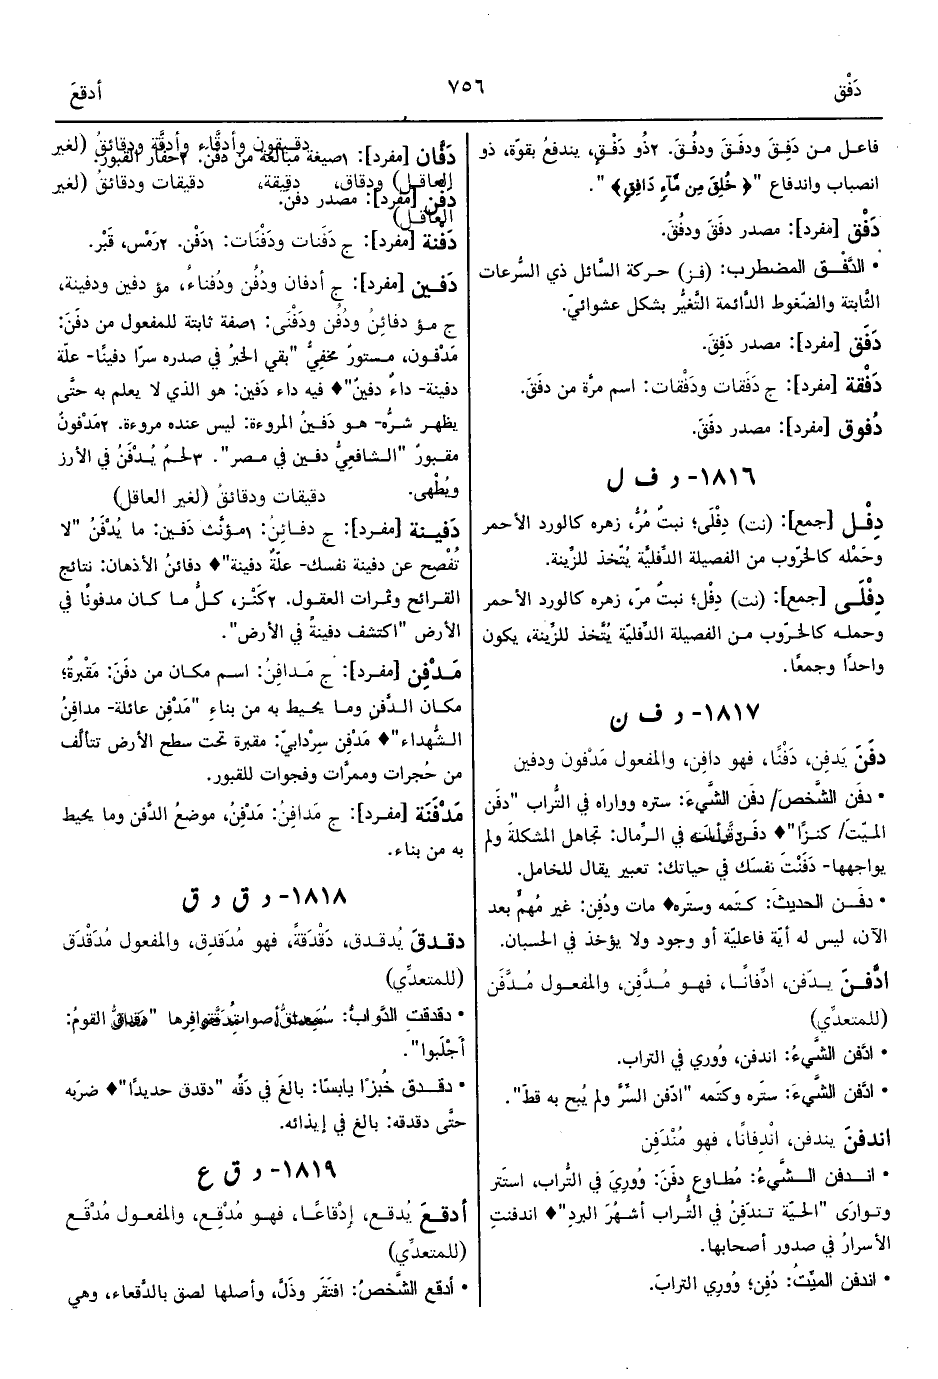 دَفْق
٧٥٦
أدقعَ
فاعل من دَفِقَ ودفَقَ ودفُقَ. ٢ذُو دَفْقٍ، يندفعُ بقوّة، ذو
انصباب واندفاع "﴿ خُلِقَ مِن مَّآءٍ دَافِقٍ﴾ ".
دَفْق [مفرد]: مصدر دفَقَ ودفُقَ.
• الدَّفْـق المضطرب: (فـز) حركة السَّائل ذي السُّرعات
الثَّابتة والضّغوط الدَّائمة التَّغيُّر بشكل عشوائيّ.
دَفَق [مفرد]: مصدر دَفِقَ.
دَفْقة [مفرد]: ج دَفَقات ودَفْقات: اسم مرَّة من دفَقَ.
دُفوق [مفرد]: مصدر دفَقَ.
١٨١٦- د ف ل
دِفْـل [جمع]: (نت) دِفْلَى؛ نبتٌ مُرٌّ، زهره كالورد الأحمر
وحَمْله كالخرّوب من الفصيلة الدِّفليَّة يُتَّخذ للزِّينة.
دِفْلَـى [جمع]: (نت) دِفل؛ نبتٌ مرّ، زهره كالورد الأحمر
وحمله كالخرّوب مـن الفصيلة الدِّفليّة يُتَّخذ للزِّينة، يكون
واحدًا وجمعًا.
١٨١٧- د ف ن
دفَنَ يَدفِن، دَفْنًا، فهو دافِن، والمفعول مَدْفون ودفين
• دفَن الشَّخصَ/ دفَن الشَّيءَ: ستره وواراه في التُّراب "دفَن
الميِّتَ/ كنـزًا"♦ دفَـن رأسَه في الـرِّمال: تجاهل المشكلةَ ولم
يواجهها- دَفَنْتَ نفسَك في حياتك: تعبير يقال للخامل.
• دفَـن الحديثَ: كـتَمه وستَره♦ مات ودُفِن: غير مُهمٍّ بعد
الآن، ليس له أيّة فاعليّة أو وجود ولا يؤخذ في الحسبان.
ادَّفـنَ يـدَّفن، ادِّفانًـا، فهـو مُـدَّفِن، والمفعول مُـدَّفَن
(للمتعدِّي)
• ادَّفن الشَّيءُ: اندفن، وُوري في التراب.
• ادَّفن الشَّيءَ: ستَره وكتَمه "ادَّفن السِّرَّ ولم يُبح به قطّ".
اندفنَ يندفن، اندِفانًا، فهو مُنْدَفِن
• انـدفن الـشَّيءُ: مُطاوع دفَنَ: وُورِيَ في التُّراب، استَتر
وتـوارَى "الحيّة تـندفِنُ في التُّراب أشهُرَ البردِ"♦ اندفنتِ
الأسرارُ في صدور أصحابها.
• اندفن الميِّتُ: دُفِن؛ وُوري الترابَ.
دقيقون وأدقَّاء وأدِقَّة ودقائقُ (لغير
دَفَّان [مفرد]: ١صيغة مبالغة من دفَنَ. ٢حفَّار القبور.
العاقل) ودِقاق، دقيقة، دقيقات ودقائقُ (لغير
دَفْن [مفرد]: مصدر دفَنَ.
العاقل)
دَفْنة [مفرد]: ج دَفَنات ودَفْنات: ١دَفْن. ٢رَمْس، قَبْر.
دَفـين [مفرد]: ج أدفان ودُفُن ودُفناءُ، مؤ دفين ودفينة،
ج مـؤ دفائنُ ودُفُن ودَفْنَى: ١صفة ثابتة للمفعول من دفَنَ:
مَدْفون، مستورٌ مخفِيٌّ "بقي الخبرُ في صدره سرًّا دفينًا- علّة
دفينة- داءٌ دفينٌ"♦ فيه داء دَفين: هو الذي لا يعلم به حتَّى
يظهـر شـرُّه- هـو دَفينُ المروءة: ليس عنده مروءة. ٢مَدْفونٌ
مقـبورٌ "الـشافعيُّ دفـين في مـصر". ٣لحـمٌ يُـدْفَنُ في الأرز
ويُطْهى. دقيقات ودقائقُ (لغير العاقل)
دَفـينـة [مفـرد]: ج دفـائنُ: ١مؤنَّث دَفين: ما يُدْفَنُ "لا
تُفْصح عن دفينة نفسك- علّة دفينة"♦ دفائن الأذهان: نتائج
القرائح وثمرات العقول. ٢كَنْـز، كـلُّ مـا كـان مدفونًا في
الأرض "اكتشف دفينةً في الأرض".
مَـدْفِن [مفـرد]: ج مَـدافِنُ: اسـم مكـان من دفَنَ: مَقْبرةٌ؛
مكـان الـدَّفن ومـا يحـيط به من بناءٍ "مَدْفِن عائلة- مدافِنُ
الـشُّهداء"♦ مَدْفِن سِرْدابيّ: مقبرة تحت سطح الأرض تتألَّف
من حُجرات وممرَّات وفجوات للقبور.
مَدْفَنَة [مفـرد]: ج مَدافِنُ: مَدْفِنٌ، موضعُ الدَّفن وما يحيط
به من بناء.
١٨١٨- د ق د ق
دقـدقَ يُدقـدق، دَقْدَقةً، فهو مُدَقدِق، والمفعول مُدَقْدَق
(للمتعدِّي)
• دقدقت الدَّوابُّ: سُمِعت أصوات حوافِرها "دقدق القومُ:
أَجْلَبوا".
• دقـدق خُبـزًا يابسًا: بالغَ في دَقِّه "دقدق حديدًا"♦ ضرَبه
حتَّى دقدقه: بالغ في إيذائه.
١٨١٩- د ق ع
أدقـعَ يُدقـع، إدْقاعًـا، فهـو مُدْقِـع، والمفعـول مُدْقَـع
(للمتعدِّي)
• أدقع الشَّخصُ: افتَقَر وذَلَّ، وأصلها لصق بالدَّقعاء، وهي